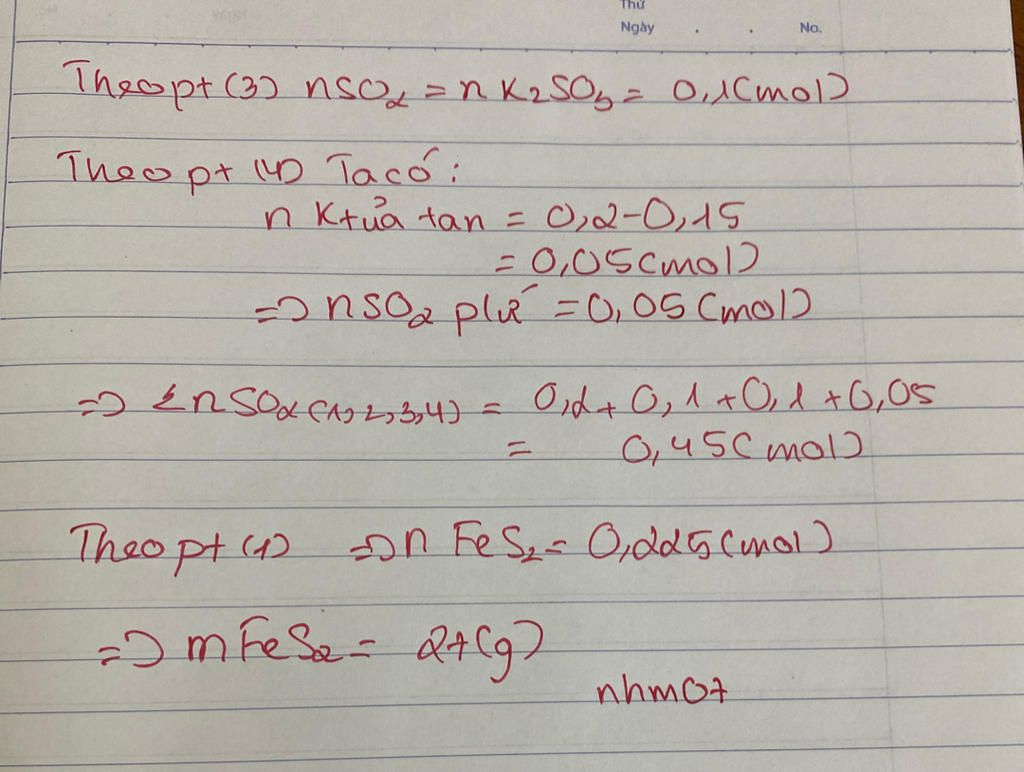 Thứ
Ngày . . No.
Theo pt (3) nSO2 = n K2SO3 = 0,1(mol)
Theo pt (4) Ta có:
n Ktủa tan = 0,2-0,15
= 0,05(mol)
=> nSO2 pứ = 0,05 (mol)
=> ΣnSO2 (1,2,3,4) = 0,2+0,1+0,1+0,05
= 0,45(mol)
Theo pt (1) => n FeS2 = 0,225(mol)
=> mFeS2 = 27(g)
nhm07